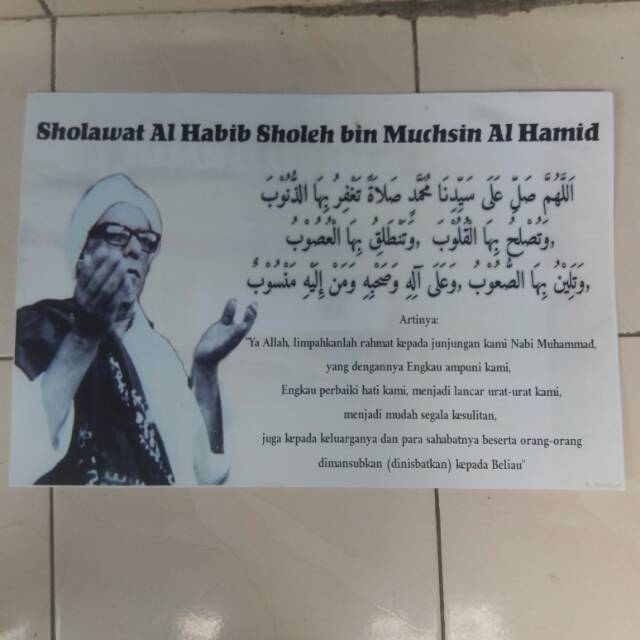 Sholawat Al Habib Sholeh bin Muchsin Al Hamid
اَللّٰهُمَّ صَلِّ عَلَى سَيِّدِنَا مُحَمَّدٍ صَلَاةً تَغْفِرُ بِهَا الذُّنُوْبَ
,وَتُصْلِحُ بِهَا الْقُلُوْبَ ,وَتَنْطَلِقُ بِهَا الْعُصُوْبُ
,وَتَلِيْنُ بِهَا الصُّعُوْبُ ,وَعَلَى آلِهِ وَصَحْبِهِ وَمَنْ إِلَيْهِ مَنْسُوْبٌ
Artinya:
"Ya Allah, limpahkanlah rahmat kepada junjungan kami Nabi Muhammad,
yang dengannya Engkau ampuni kami,
Engkau perbaiki hati kami, menjadi lancar urat-urat kami,
menjadi mudah segala kesulitan,
juga kepada keluarganya dan para sahabatnya beserta orang-orang
dimansubkan (dinisbatkan) kepada Beliau"